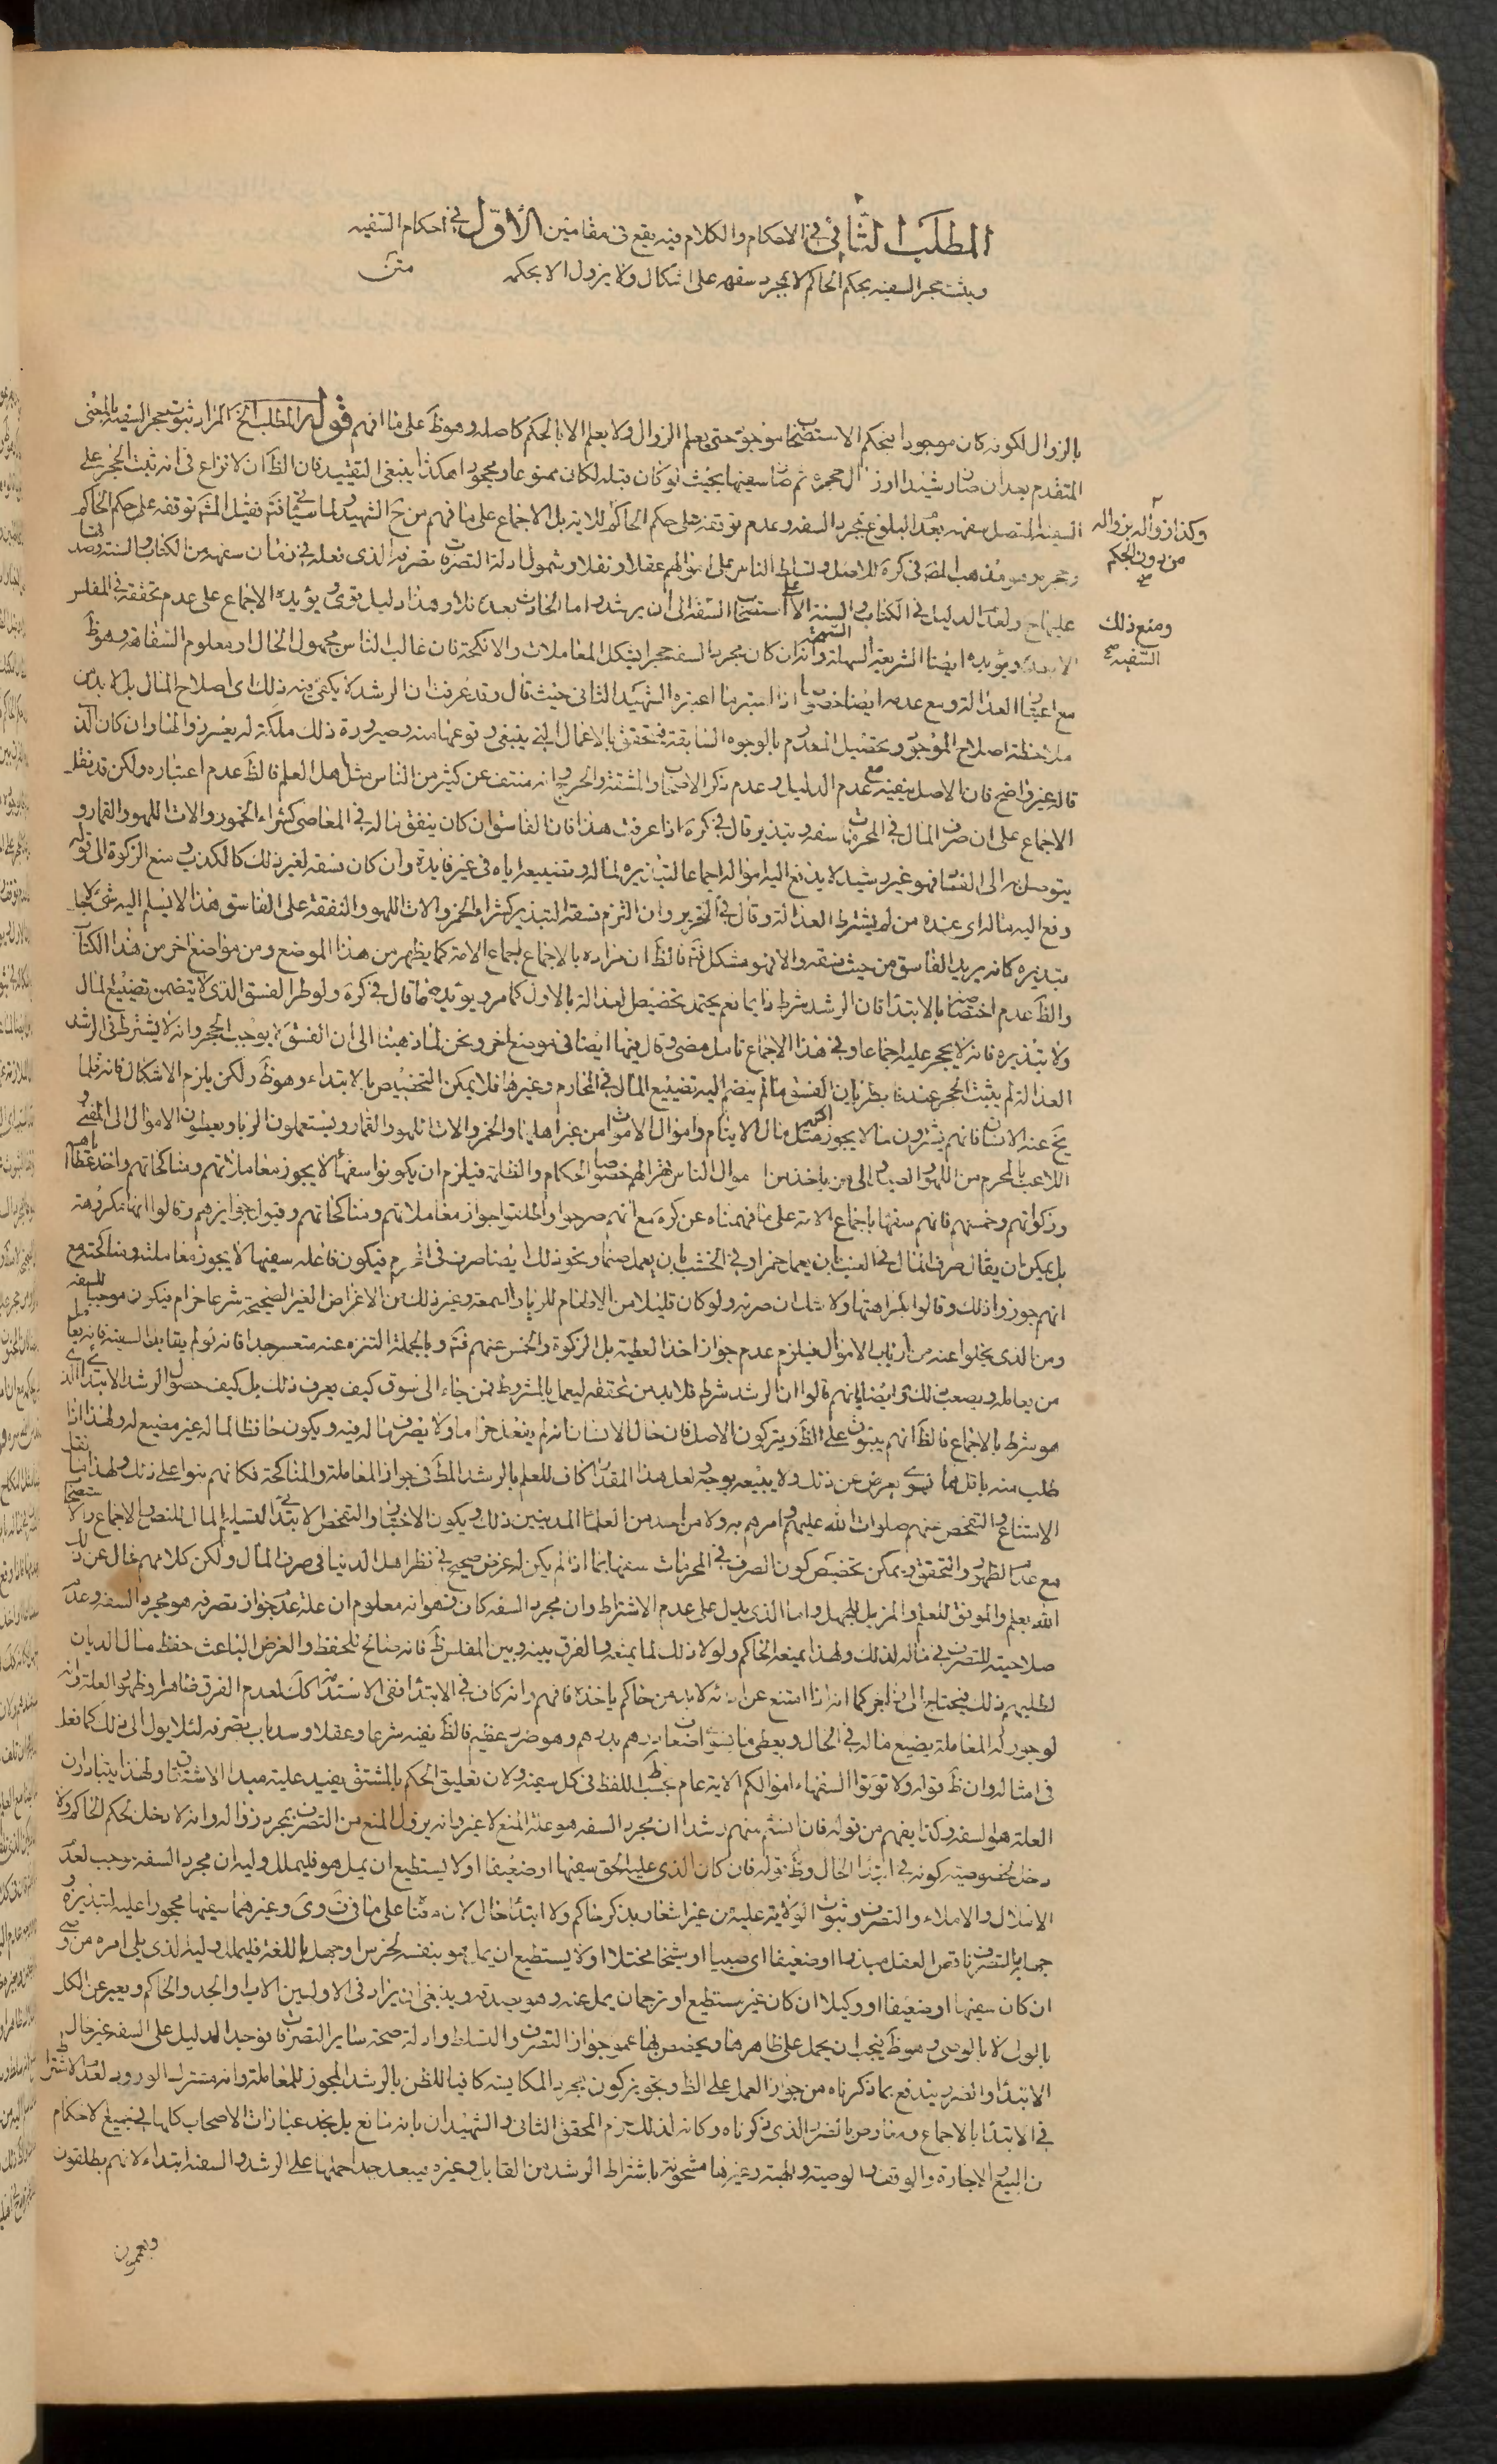 المطلب الثاني في الاحكام والكلام فيه يقع في مقامين الأوّل في احكام السفيه
ويثبت حجر السفيه بحكم الحاكم لا بمجرد سفهه على اشكال ولا يزول الا بحكمه
متن
بالزوال لكونه كان موجودا بحكم الاستصحاب موجود حتى يعلم الزوال ولا يعلم الا بالحكم كاصله وهو ظ على ما افهم قوله المطلب الخ المراد ثبوت حجر السفيه بالمعنى
المتقدم بعد ان صار رشيدا وزال حجره ثم صار سفيها بحيث لو كان قبله لكان ممنوعا ومحجورا هكذا ينبغي التقييد فان الظ ان لا نزاع في انه يثبت الحجر على
السفيه المتصل سفهه بعد البلوغ بمجرد السفه وعدم توقفه على حكم الحاكم للاية بل الاجماع على ما فهم من ح الشهيد ولما سيأتي فت فقيل المشـ توقفه على حكم الحاكم
وحجره وهو مذهب المص في كره للاصل وتسلط الناس على اموالهم عقلا ونقلا وشمول ادلة التصرفات تصرفه الذي فعله في زمان سفهه من الكتاب والسنة وصدقها
وكذا زواله بزواله
من دون الحكم
عليها ح ولعدم الدليل في الكتاب والسنة الا على استصحاب السفه الى ان يرشد واما الحادث بعده فلا وهذا دليل قوى ويؤيده الاجماع على عدم تحققه في المفلس
ومنع ذلك
السفيه صح
الا بعده ويؤيده ايضا الشريعة السهلة السمحة وانه ان كان مجرد السفه حجرا يشكل المعاملات والانكحة فان غالب الناس مجهول الحال او معلوم السفاهة وهو ظ
مع اعتبار العدالة ومع عدمه ايضا خصوصا اذا اعتبر ما اعتبره الشهيد الثاني حيث قال وقد عرفت ان الرشد لا يكفي فيه ذلك اى اصلاح المال بل لا بد من
ملاحظة اصلاح الموجود وتحصيل المعدوم بالوجوه السابقة فيتحقق بالاعمال التي ينبغي وقوعها منه وصيرورة ذلك ملكة له يعسر زوالها وان كان الذي
قاله غير واضح فان الاصل ينفيه مع عدم الدليل وعدم ذكر الاصحاب والمشقة والحرج وانه منتف عن كثير من الناس مثل اهل العلم فالظ عدم اعتباره ولكن قد نقل
الاجماع على ان صرف المال في المحرمات سفه وتبذير قال في كره اذا عرفت هذا فان الفاسق ان كان ينفق ماله في المعاصي كشراء الخمور والات اللهو والقمار و
يتوصل به الى الفساد فهو غير رشيد لا يدفع اليه امواله اجماعا لتبذيره لماله وتضييعه اياه في غير فايدة وان كان فسقه لغير ذلك كالكذب ومنع الزكوة الى قوله
دفع اليه ماله اى عنده من لم يشترط العدالة وقال في التحرير وان التزم فسقه التبذير كشراء الخمر والات اللهو والنفقة على الفاسق هذا لا يسلم اليه شئ لاجل
تبذيره كانه يريد الفاسق من حيث فسقه والا فهو مشكل فت فالظ ان مراده بالاجماع اجماع الامة كما يظهر من هذا الموضع ومن مواضع اخر من هذا الكتاب
والظ عدم اختصاصه بالابتداء فان الرشد شرط دايما نعم يحتمل تخصيص العدالة بالاول كما مر ويؤيده ما قال في كره ولو طرا الفسق الذي لا يتضمن تضييع المال
ولا تبذيره فانه لا يحجر عليه اجماعا وفي هذا الاجماع تامل مضى وقال فيها ايضا في موضع اخر ونحن لما ذهبنا الى ان الفسق لا يوجب الحجر وانه لا يشترط في الرشد
العدالة لم يثبت الحجر عندنا بطريان الفسق ما لم ينضم اليه تضييع المال في المحارم وغيرها فلا يمكن التخصيص بالابتداء وهو ظ ولكن يلزم الاشكال فانه قلما
يخ عنه الانسان فانهم يشترون ما لا يجوز اكثرهم مثل مال الايتام واموال الاموات من غير اهلها والخمر والات اللهو والقمار ويستعملون الربا ويعطون الاموال الى المغني و
اللاعب بالمحرم من اللهو واللعب والى من ياخذ من اموال الناس قهرا لهم خصوصا الحكام والظلمة فيلزم ان يكونوا سفها لا يجوز معاملاتهم ومناكحاتهم واخذ عطاياهم
وزكواتهم وخمسهم فانهم سفها باجماع الامة على ما فهمناه عن كره مع انهم صرحوا واطلقوا جواز معاملاتهم ومناكحاتهم وقبول جوايزهم وقالوا انها مكروهة
بل يمكن ان يقال صرف المال في العنب بان يعمل خمرا وفي الخشب بان يعمل صنما ونحو ذلك ايضا صرف في المحرم فيكون فاعله سفيها لا يجوز معاملته ومناكحته مع
انهم جوزوا ذلك وقالوا بكراهتها ولا شك ان صرفه ولو كان قليلا من الاطعام للرياء والسمعة وغير ذلك من الاغراض الغير الصحيحة شرعا حرام فيكون موجبا للسفه
ومن الذي يخلوا عنه من ارباب الاموال فيلزم عدم جواز اخذ العطية بل الزكوة والخمس عنهم فت وبالجملة التنزه عنه متعسر جدا فانه لو لم يقابل السفيه فانه يعامل
من يعامله ويصعب ذلك وايضا فانهم قالوا ان الرشد شرط فلا بد من تحققه ليعمل بالمشروط فمن جاء الى سوق كيف يعرف ذلك بل كيف حصول الرشد الابتدائي الذي
هو شرط بالاجماع فالظ انهم يبنون على الظ ويتركون الاصل فان حال الانسان انه لم يفعل حراما ولا يصرف ماله فيه ويكون حافظا لماله غير مضيع له ولهذا اذا
طلب منه باقل مما يسوى يعرض عن ذلك ولا يبيعه بوجه لعل هذا المقدار كاف للعلم بالرشد المط في جواز المعاملة والمناكحة فكانهم بنوا على ذلك ولهذا ما نقل
الامتناع والتفحص عنهم صلوات الله عليهم وامرهم به ولا من احد من العلماء المدينين ذلك ويكون الاختبار والتفحص الابتدائي لتسليم المال للنص والاجماع والاستصحاب
مع عدم الظهور والتحقق ويمكن تخصيص كون الصرف في المحرمات سفها بما اذا لم يكن له غرض صحيح في نظر اهل الدنيا في صرف المال ولكن كلامهم خال عن ذلك
الله يعلم والموفق للعلم والمزيل للجهل واما الذي يدل على عدم الاشتراط وان مجرد السفه كان فهو انه معلوم ان علة عدم جواز تصرفه هو مجرد السفه وعدم
صلاحيته للتصرف في ماله لذلك ولهذا يمنعه الحاكم ولولا ذلك لما يمنعه والفرق بينه وبين المفلس ظ فانه صالح للحفظ والغرض الباعث حفظ مال الديان
لطلبهم ذلك فيحتاج الى زاجر كما انه اذا امتنع عن ادائه لا بد من حاكم ياخذه فافهم وانه كان في الابتداء ففي الاستدامة كك لعدم الفرق ظاهرا وظهور العلة وانه
لو جوز له المعاملة يضيع ماله في الحال ويعطي ما يسوى اضعاف درهم بدرهم وهو ضرر عظيم فالظ نفيه شرعا وعقلا وسد باب تصرفه لئلا يول الى ذلك كما فعل
في امثاله وان ظ قوله ولا تؤتوا السفهاء اموالكم الاية عام بحسب اللفظ في كل سفيه ولان تعليق الحكم بالمشتق يفيد علية مبدا الاشتقاق ولهذا يتبادر ان
العلة هو السفه وكذا يفهم من قوله فان انستم منهم رشدا ان مجرد السفه هو علة المنع لا غير وانه يزول المنع من التصرف بمجرد زواله وانه لا دخل لحكم الحاكم ولا
دخل لخصوصية كونه في ابتداء الحال وظ قوله فان كان الذي عليه الحق سفيها او ضعيفا او لا يستطيع ان يمل هو فليملل وليه ان مجرد السفه يوجب لعدم
الاملال والاملاء والتصرف وثبوت الولاية عليه من غير اشعار بذكر حاكم ولا ابتداء حال لان معنا على ما في ق وى وغيرهما سفيها محجورا عليه لتبذيره و
جهله بالتصرف ناقص العقل مبذرا او ضعيفا اى صبيا او شيخا مختلا او لا يستطيع ان يمل هو بنفسه لخرس او جهل باللغة فليملل وليه الذي يلي امره من وصي
ان كان سفيها او ضعيفا او وكيلا ان كان غير مستطيع او ترجمان يمل عنه وهو يصدقه وينبغي ان يزاد في الاولين الاب والجد والحاكم ويعبر عن الكل
بالولي لا بالوصي وهو ظ فيجب ان يحمل على ظاهرها ويخصص بها عموم جواز التصرف والتسلط وادلة صحة ساير التصرفات فوجد الدليل على السفه غير حال
الابتداء والضرر يندفع بما ذكرناه من جواز العمل على الظ وتجويز كون مجرد المكايسة كافيا للظن بالرشد المجوز للمعاملة وانه مشترك الورود لعدم الاشتراط
في الابتداء بالاجماع ومعارض بالضرر الذي ذكرناه وكانه لذلك جزم المحقق الثاني والشهيدان بانه مانع بل نجد عبارات الاصحاب كلها في جميع الاحكام
من البيع والاجارة والوقف والوصية والهبة وغيرها مشحونة باشتراط الرشد من القابل وغيره فيبعد جدا حملها على الرشد والسفه ابتداء لانهم يطلقون
ويعممون